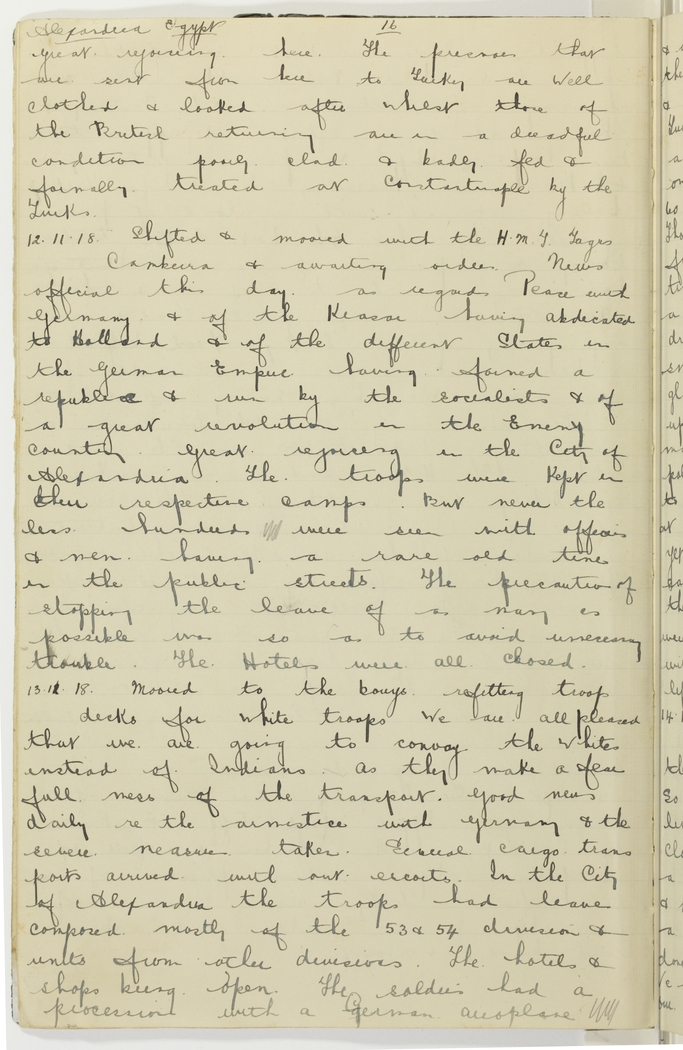 Alexandria Egypt 16
great rejoicing here. The prisoners that
are sent from here to Turkey are well
clothed & looked after whilst those of
the British returning are in a dreadful
condition poorly clad. & badly fed &
formally treated at Constantinople by the
Turks.
12.11.18. Shifted & moored with the H.M.T. Tagus
& awaiting orders. News
official this day. as regards Peace with
Germany & of the Kiasar having abdicated
to Holland & of the different States in
the German Empire having formed a
republic & run by the socialists & of
a great revolution in the Enemy
country. Great rejoicing in the City of
Alexandria. The troops were kept in
their respective camps. But never the
less hundreds were seen with officers
& men having a rare old time
in the public streets. The precaution of
stopping the leave of as many as
possible was so as to avoid unnecessary
trouble. The Hotels were all closed.
13.11.18. Moored to the bouys. refitting troop
decks for white troops We are all pleased
that we are going to convoy the whites
instead of Indians. as they make a fear
full mess of the transport. Good news
daily re the armistice with Germany & the
severe measure taken. Several cargo trans
ports arrived with out escorts. In the City
of Alexandria the troops had leave
composed mostly of the 53 & 54 division &
units from other divisions. The hotels &
shops being open. The soldiers had a
procession with a German aeroplane